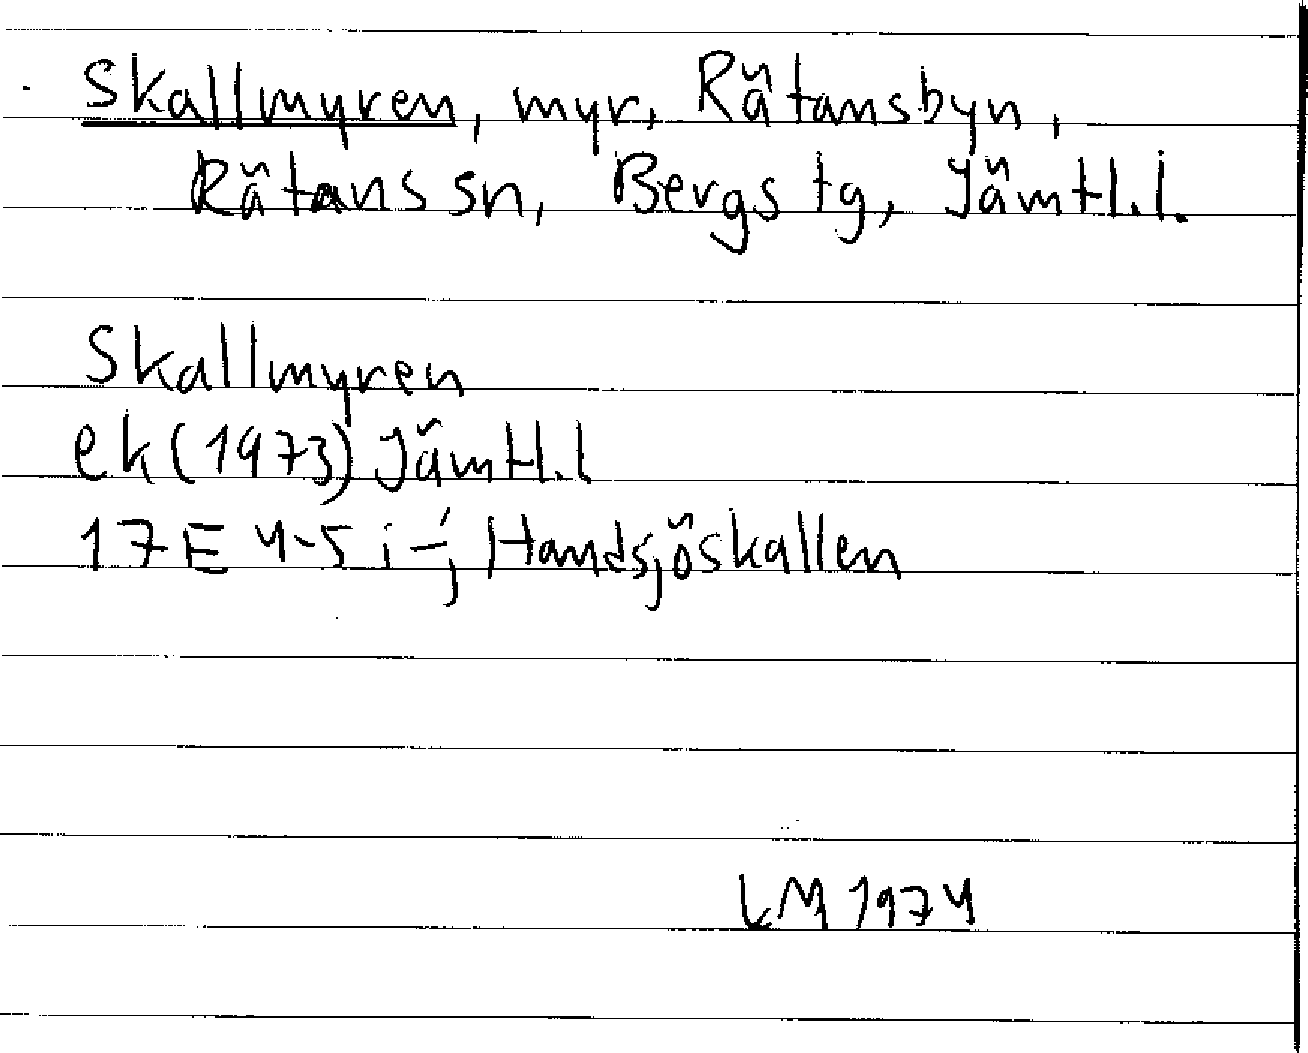 Skallmyren, myr, Rätansbyn,
Rätans sn, Bergs tg, Jämtl.l.
Skallmyren
ek(1973) Jämtl.l
17E 4-5 i-j, Handsjöskallen
LM 1974